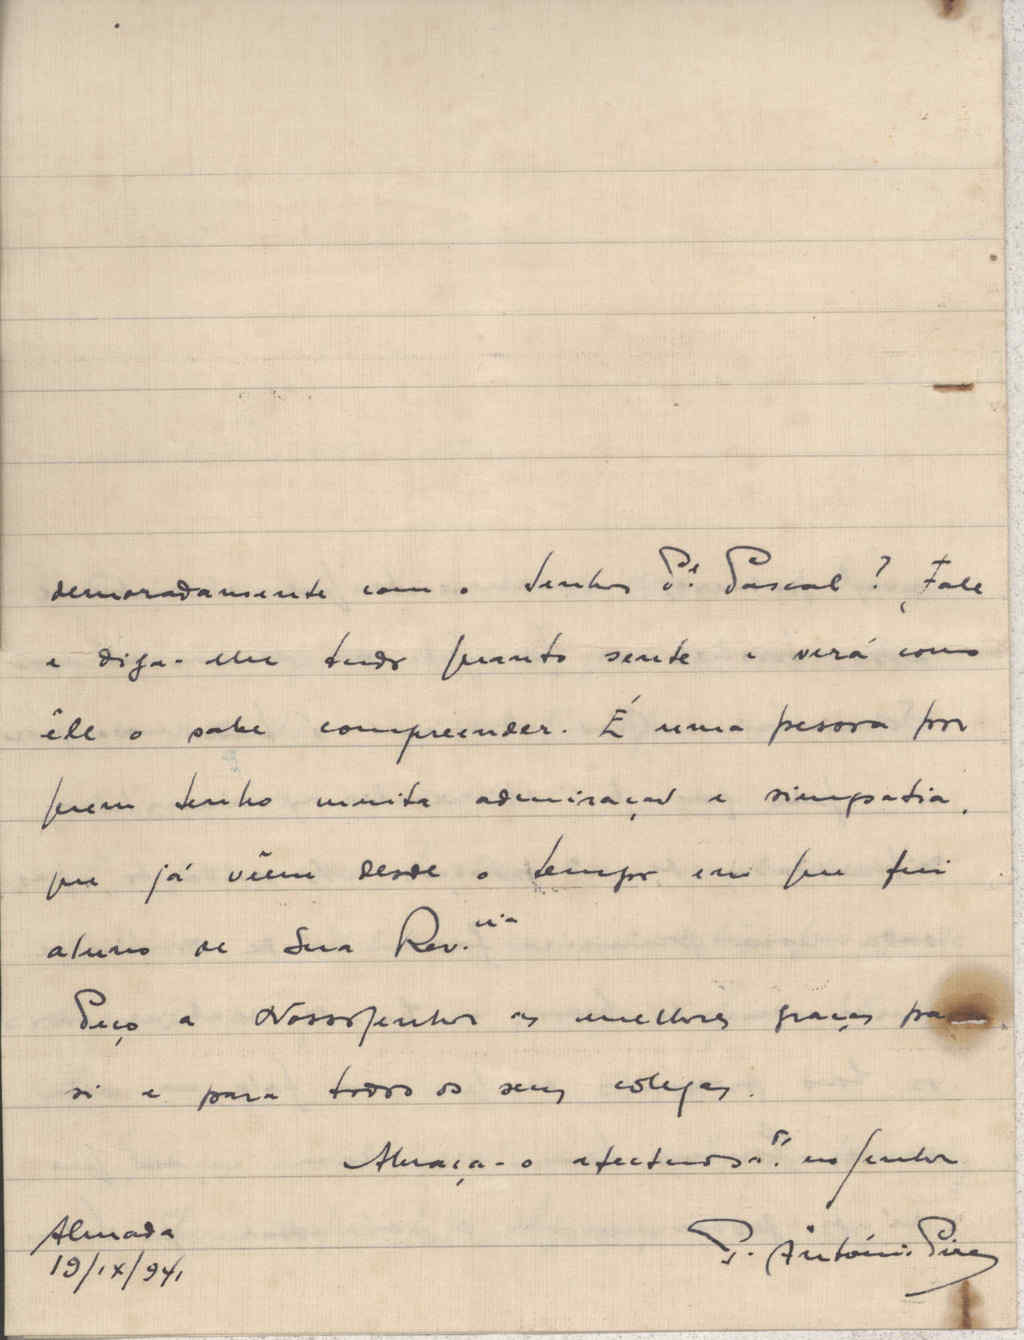 demoradamente com o Senhor P.e Pascal? Fale
e diga-lhe tudo quanto sente e verá como
êle o sabe compreender. É uma pessoa por
quem tenho muita admiração e simpatia,
que já vêem desde o tempo em que fui
aluno de Sua Rev.cia
Peço a Nosso Senhor as melhores graças para
si e para todos os seus colegas.
Abraça-o afectuosa.te no Senhor
P. António Pires
Almada
19/IX/941